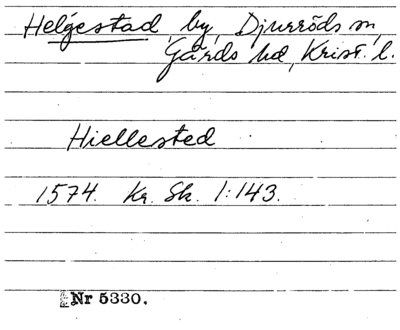 Helgestad, by, Djurröds sn,
Gärds hd, Krist. l.
Hiellested
1574. Kr. Sk. 1:143.
Nr 5330.